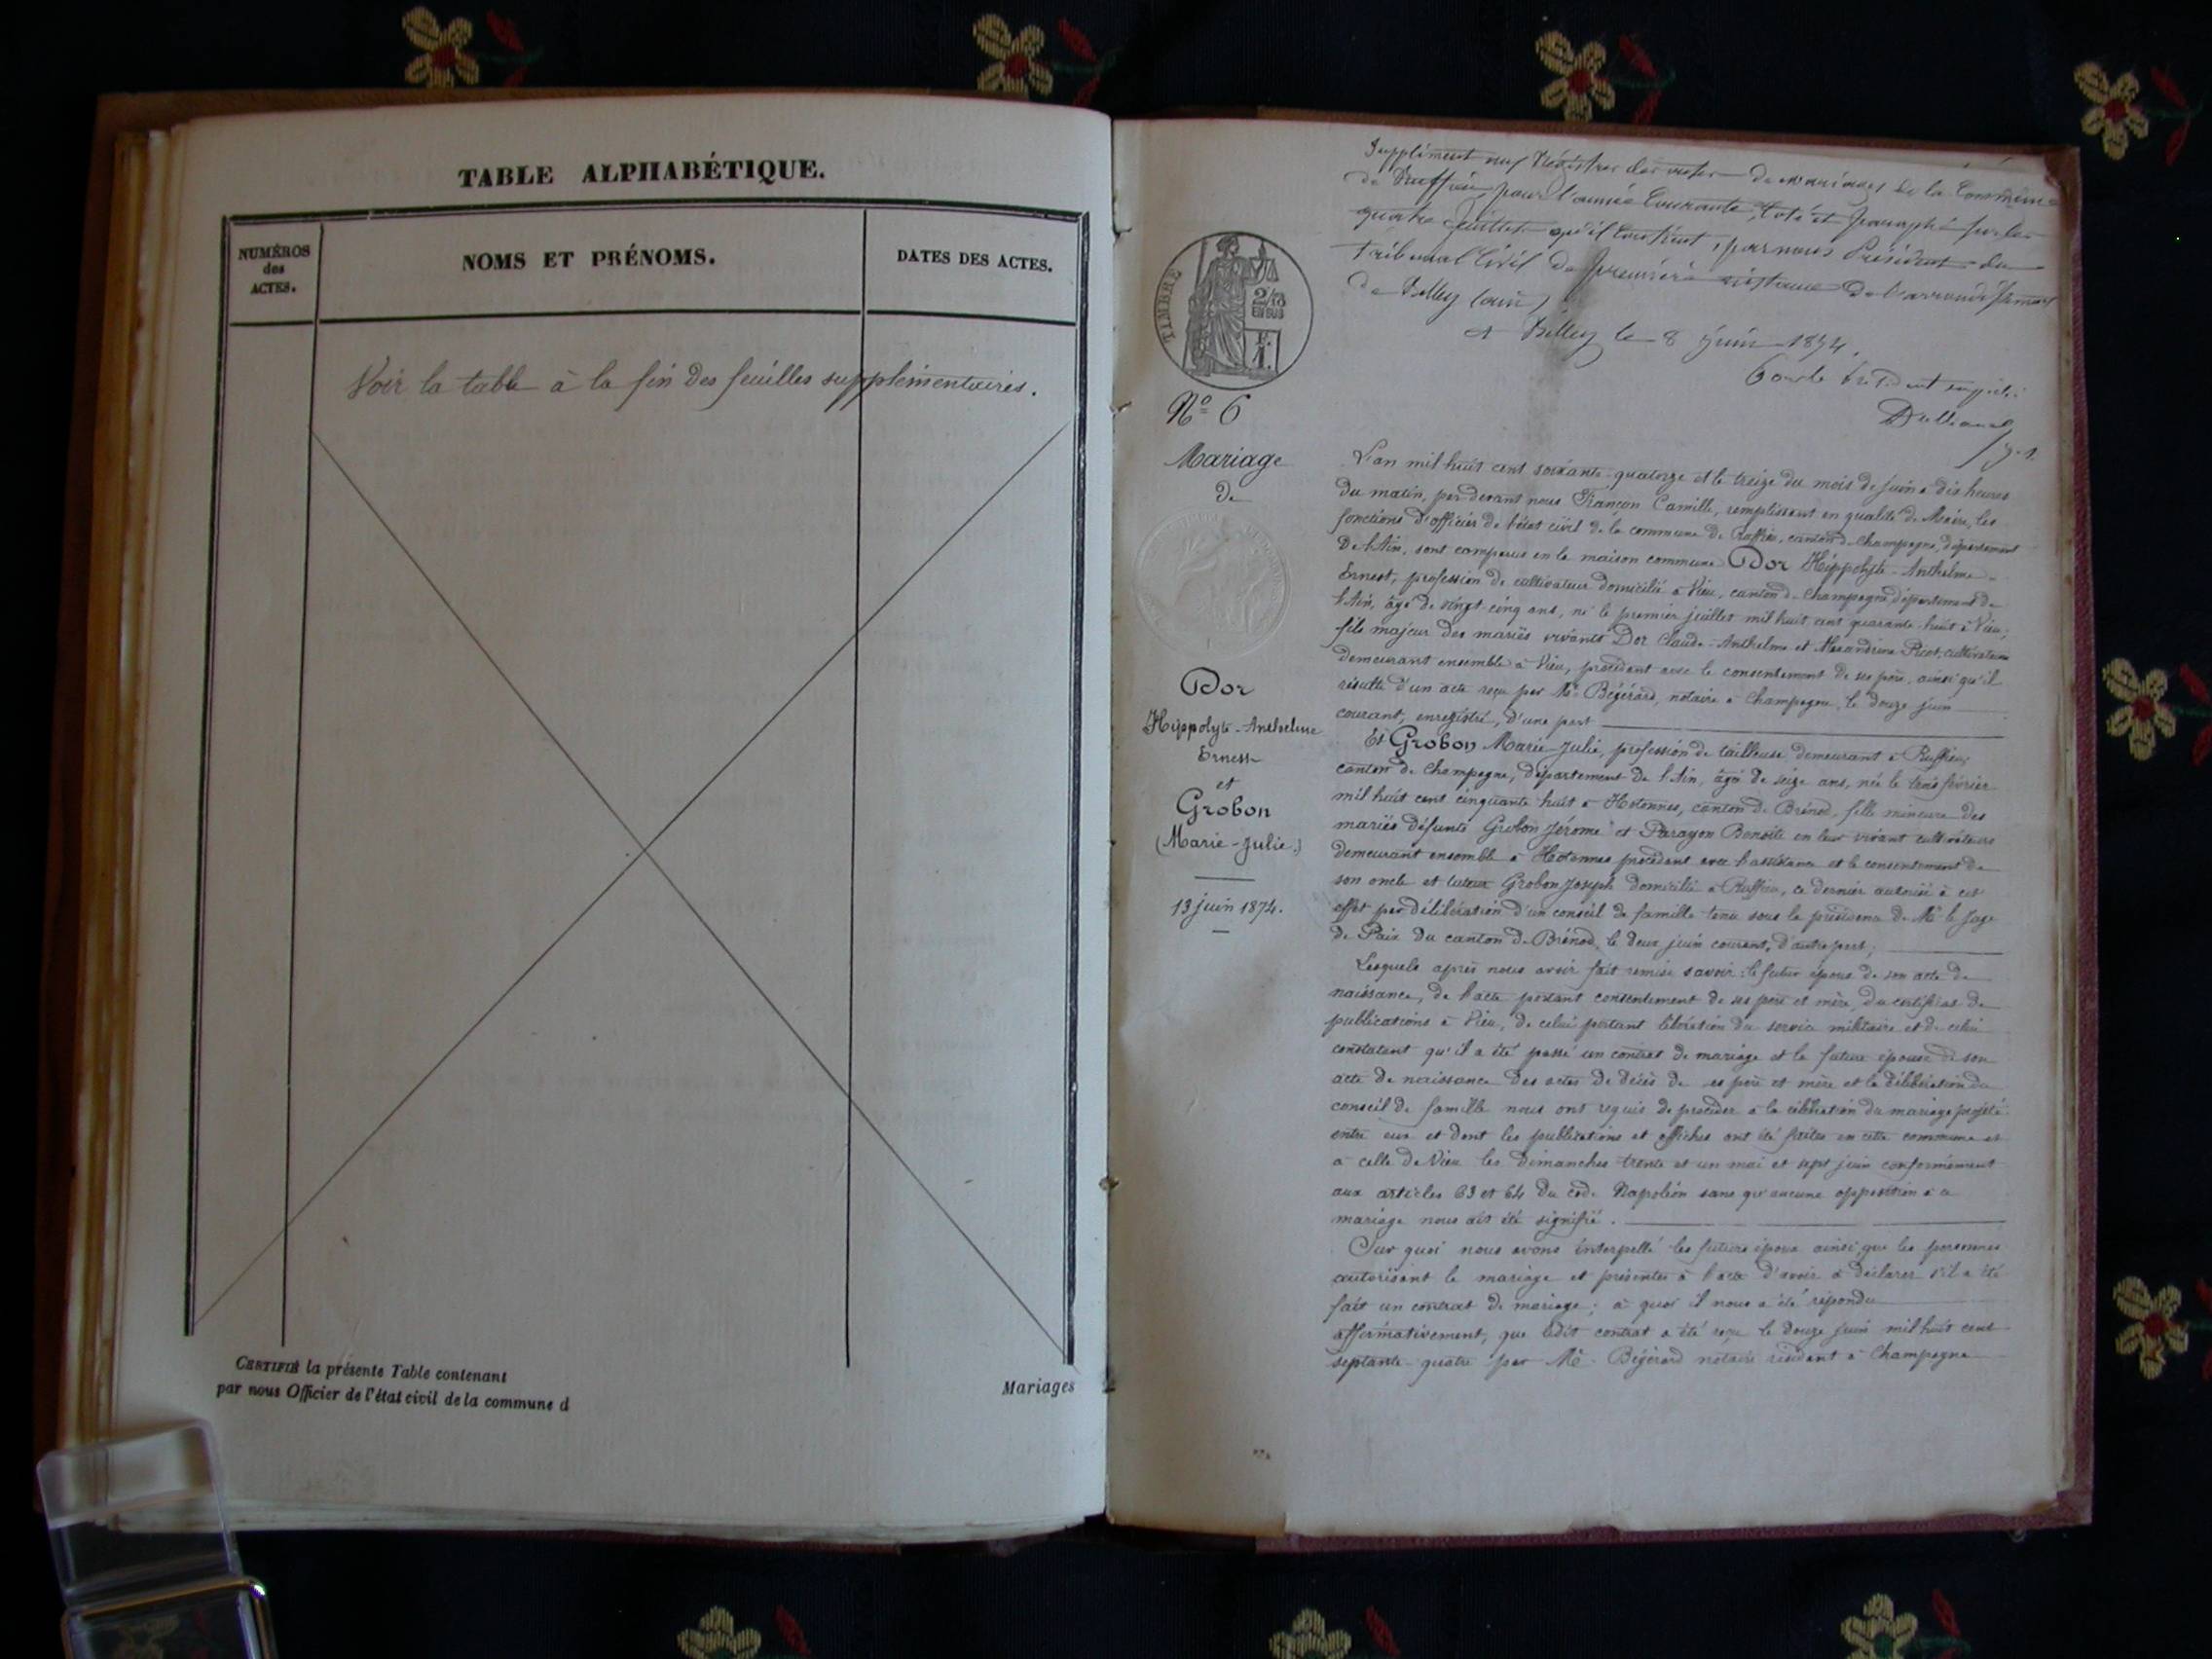 TABLE ALPHABÉTIQUE.
NUMÉROS
des
ACTES.
NOMS ET PRÉNOMS.
DATES DES ACTES.
Voir la table à la fin des feuilles supplémentaires.
CERTIFIÉ la présente Table contenant
Mariages
par nous Officier de l'état civil de la commune d
Supplément aux Régistres des actes de mariages de la Commune
de Ruffieu, pour l'année Courante, Coté et Paraphé sur les
quatre feuillets qu'il Contient, par nous Président du
Tribunal Civil de première instance de l'arrondissement
de Belley (ain)
A Belley le 8 juin 1874.
Pour le Président empêché
TIMBRE
2/10
EN SUS
1F.
N° 6
Mariage
de
Dor
Hippolyte-Anthelme
Ernest
et
Grobon
(Marie-Julie)
13 juin 1874.
L'an mil huit cent soixante-quatorze et le treize du mois de juin à dix heures
du matin, par devant nous Françon Camille, remplissant en qualité de Maire, les
fonctions d'officier de l'état civil de la commune de Ruffieu, canton de Champagne, département
de l'Ain, sont comparus en la maison commune Dor Hippolyte-Anthelme-
Ernest, profession de cultivateur domicilié à Vieu, canton de Champagne département de
l'Ain, âgé de vingt-cinq ans, né le premier juillet mil huit cent quarante-huit à Vieu;
fils majeur des mariés vivants Dor Claude-Anthelme et Alexandrine Picot, cultivateurs
demeurant ensemble à Vieu, procédant avec le consentement de ses père, ainsi qu'il
résulte d'un acte reçu par Me Bégérard, notaire à Champagne, le douze juin
courant, enregistré, d'une part
Et Grobon Marie-Julie, profession de tailleuse demeurant à Ruffieu,
canton de Champagne, département de l'Ain, âgée de seize ans, née le trois février
mil huit cent cinquante huit à Hotonnes, canton de Brénod, fille mineure des
mariés défunts Grobon Jérome et Parayon Benoite en leur vivant cultivateurs
demeurant ensemble à Hotonnes procédant avec l'assistance et le consentement de
son oncle et tuteur Grobon Joseph domicilié à Ruffieu, ce dernier autorisé à cet
effet par délibération d'un conseil de famille tenu sous la présidence de Mr le Juge
de Paix du canton de Brénod, le deux juin courant, d'autre part;
Lesquels après nous avoir fait remise savoir: le futur époux de son acte de
naissance, de l'acte portant consentement de ses père et mère, du certificat de
publications à Vieu, de celui portant libération du service militaire et de celui
constatant qu'il a été passé un contrat de mariage et la future épouse de son
acte de naissance des actes de décès de ses père et mère et la délibération du
conseil de famille nous ont requis de procéder à la célébration du mariage projeté
entre eux et dont les publications et affiches ont été faites en cette commune et
à celle de Vieu les dimanches trente et un mai et sept juin conformément
aux articles 63 et 64 du code Napoléon sans qu'aucune opposition à ce
mariage nous ait été signifié.
Sur quoi nous avons interpellé les futurs époux ainsi que les personnes
autorisant le mariage et présentes à l'acte d'avoir à déclarer s'il a été
fait un contrat de mariage; à quoi il nous a été répondu
affirmativement, que ledit contrat a été reçu le douze juin mil huit cent
septante-quatre par Me Bégérard notaire résidant à Champagne